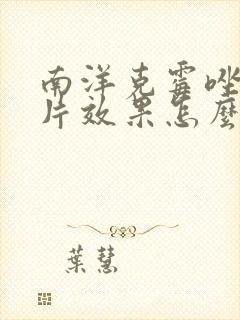 南洋克霉唑
片效果怎麼
葉慧